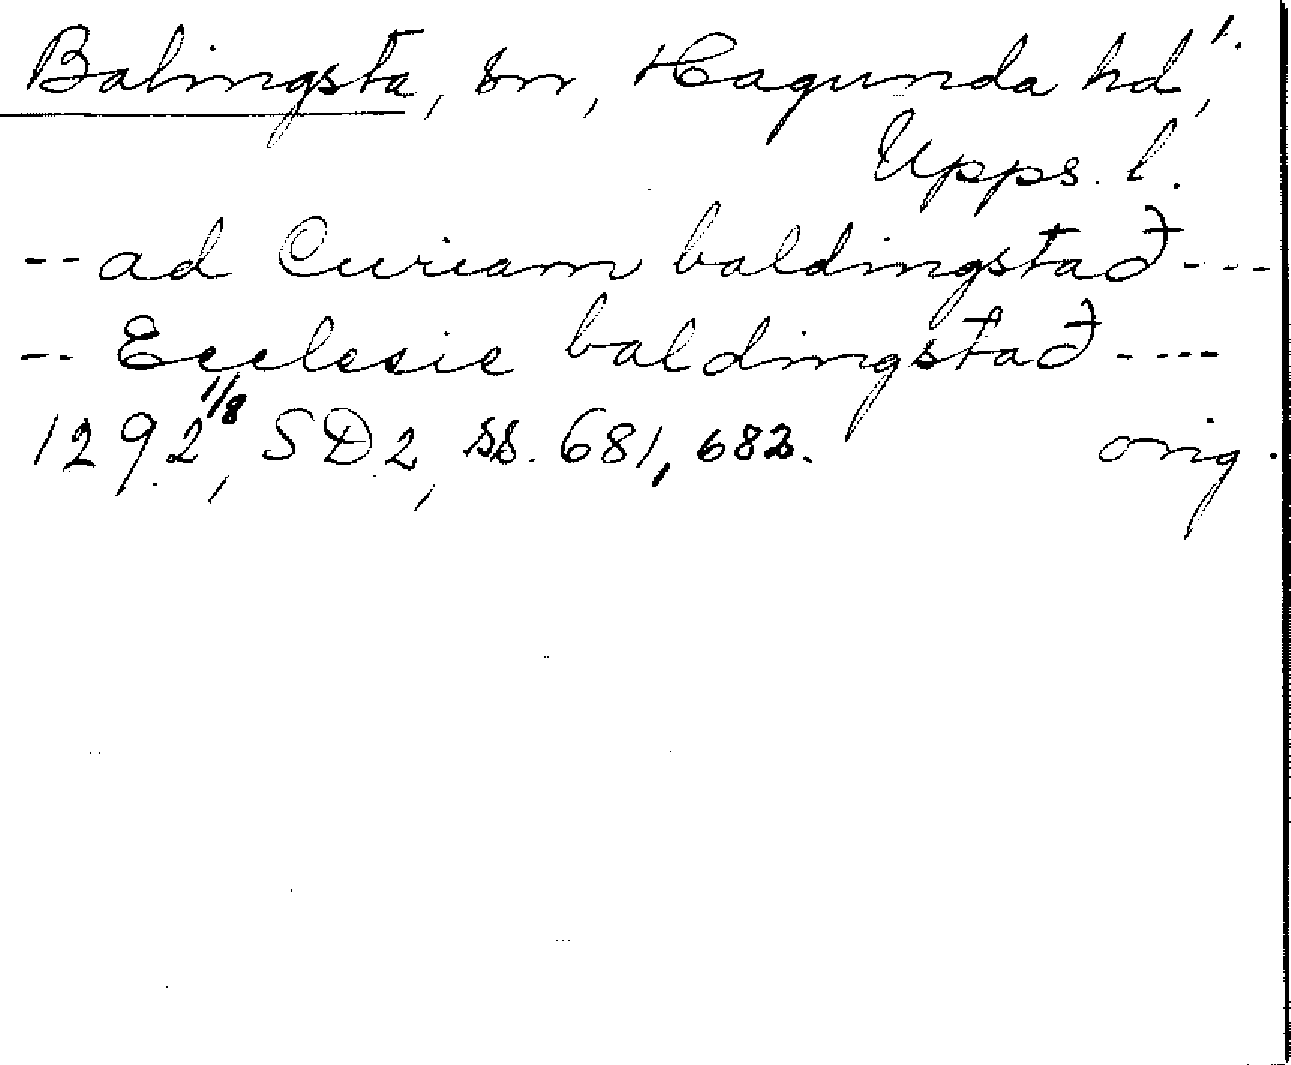 Balingsta, sn, Hagunda hd, 1.
Upps. l.
-- ad Curiam baldingstađ ---
-- Ecclesie baldingstađ ----
1292 1/8, SD 2, ss. 681, 682. orig.